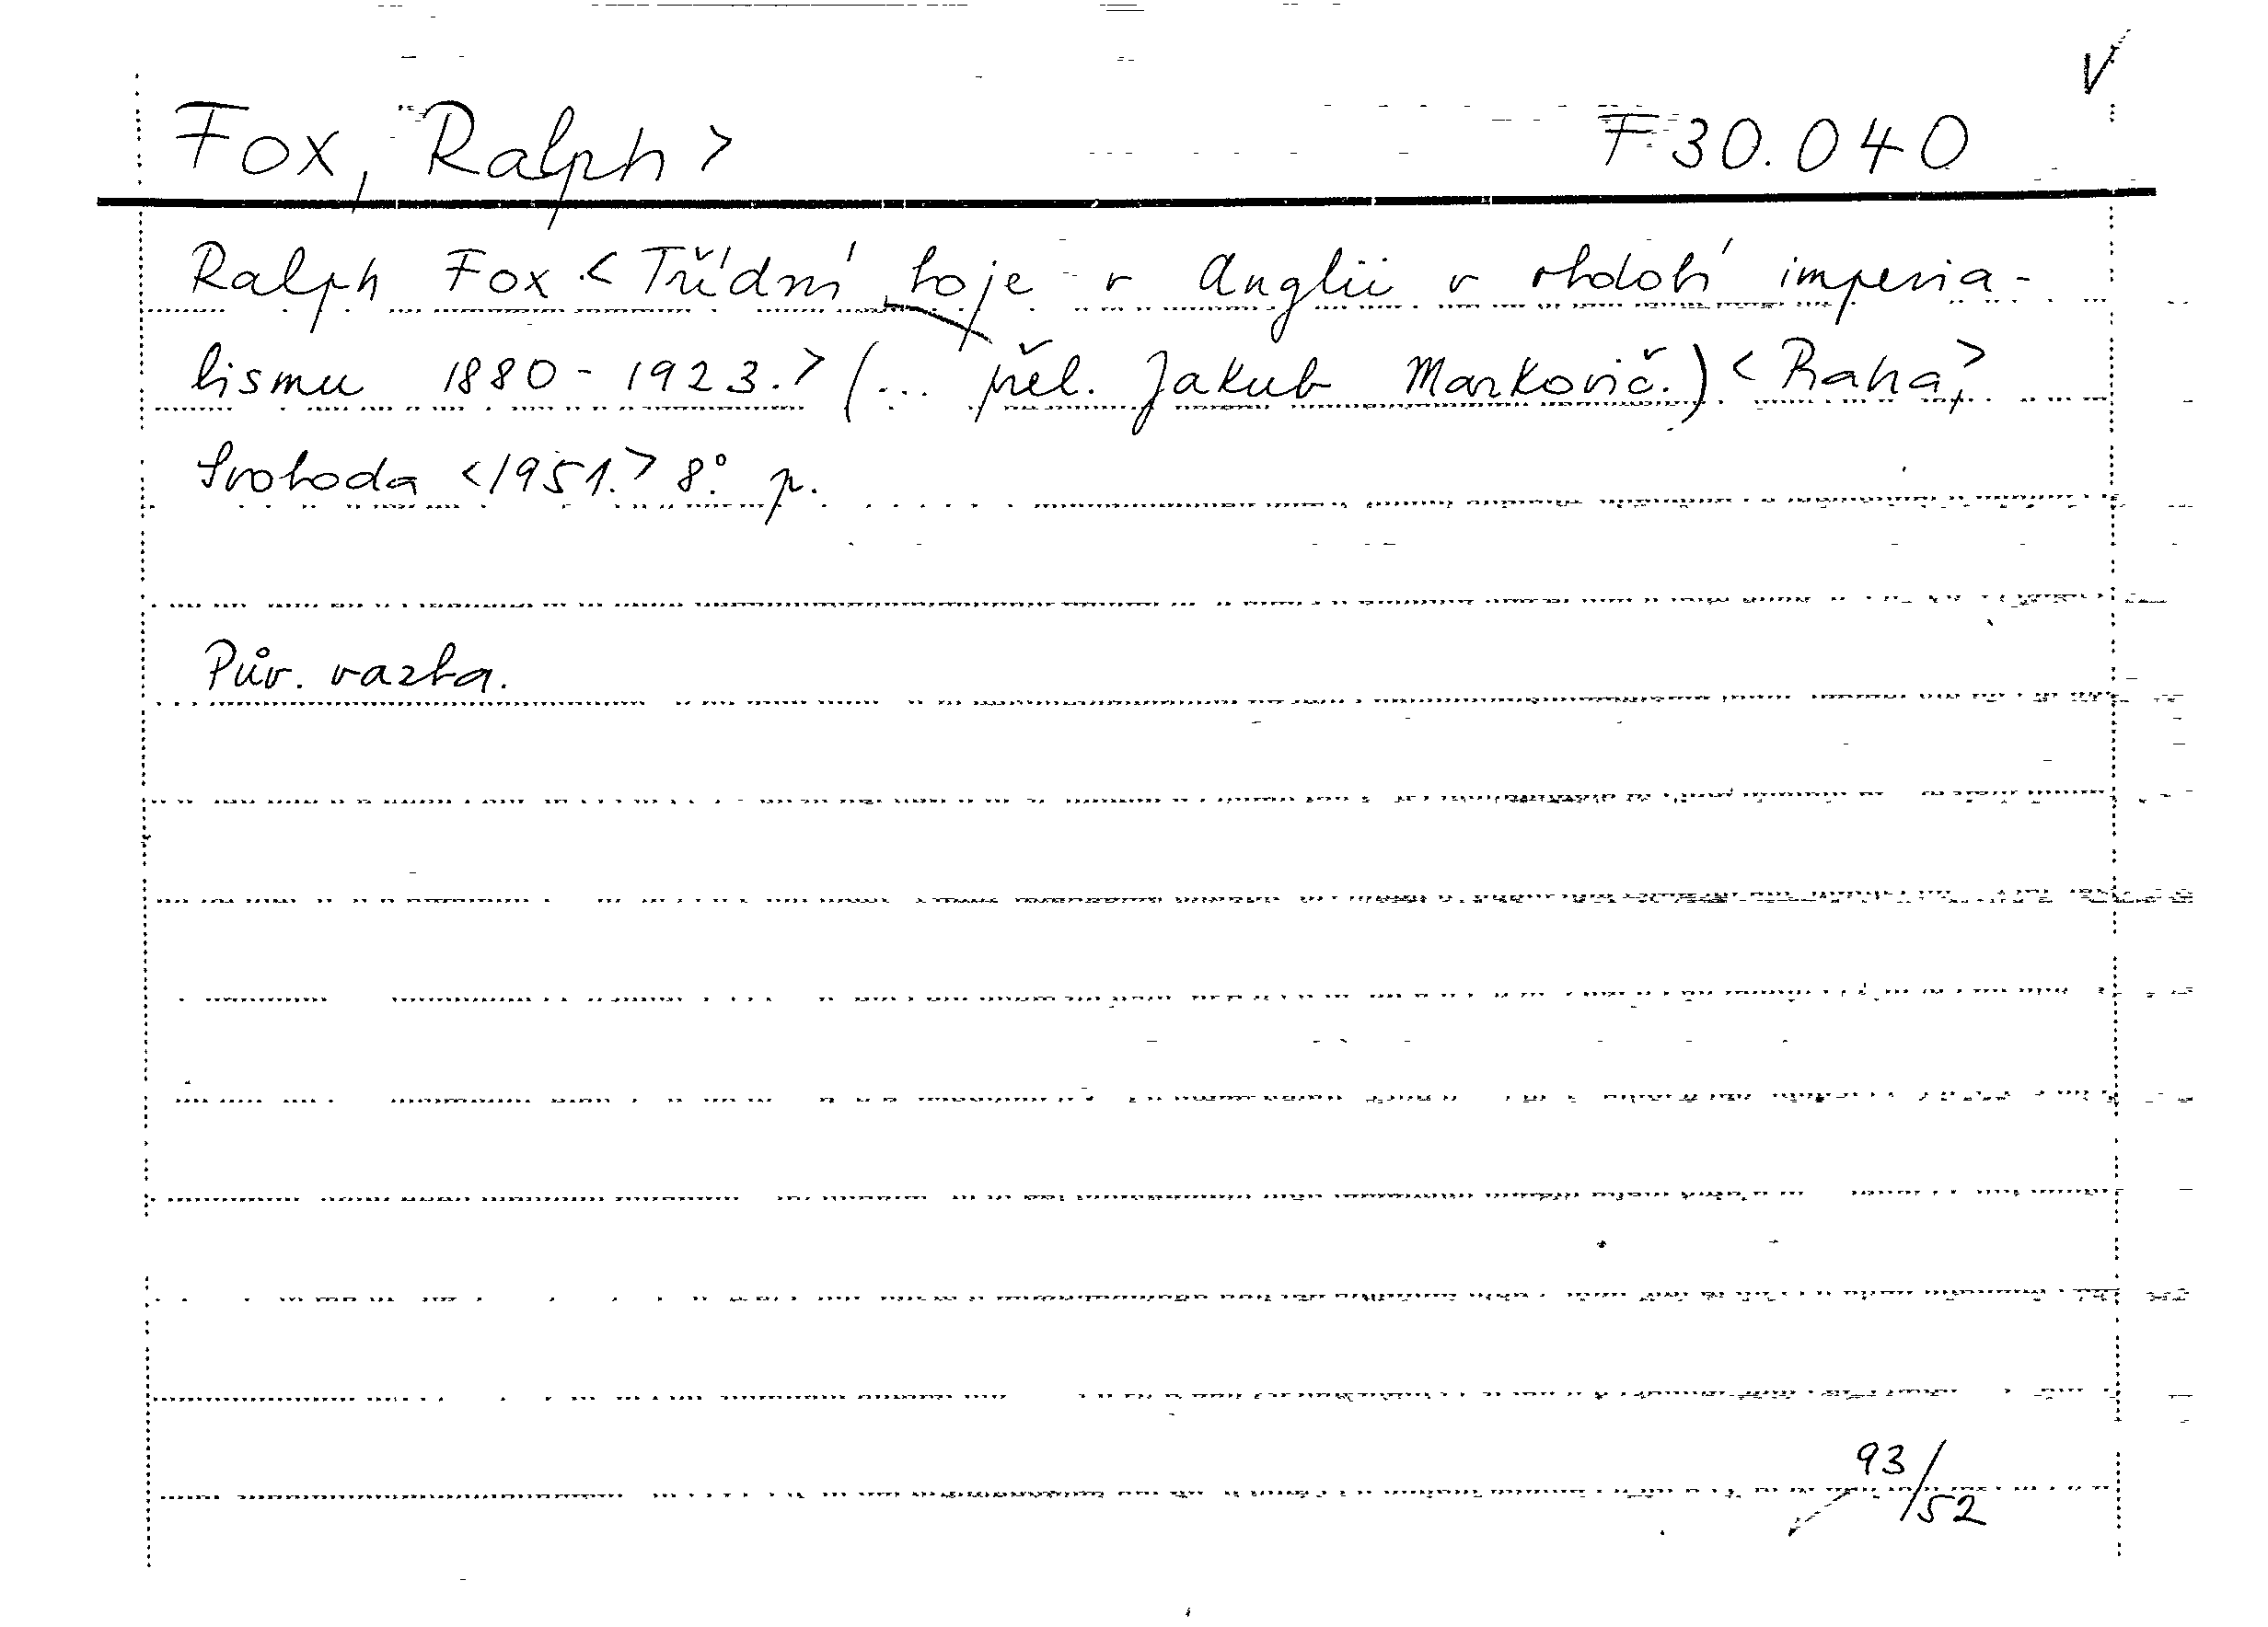 Fox, Ralph > F 30.040
Ralph Fox < Třídní boje v Anglii v období imperia-
lismu 1880-1923.> (... přel. Jakub Markovič.) < Praha,>
Svoboda <1951.> 8° p.
Pův. vazba.
93/52